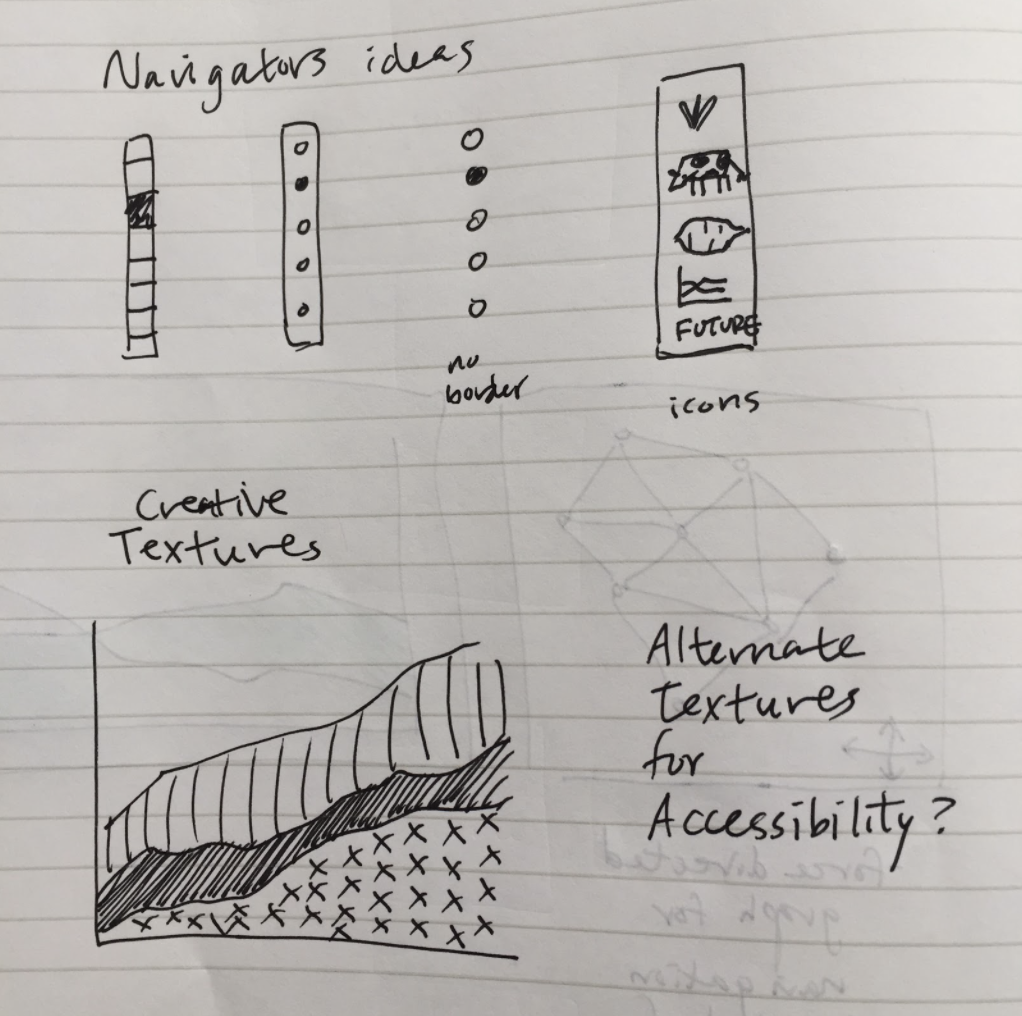 Navigators ideas
no
border
FUTURE
icons
Creative
Textures
Alternate
Textures
for
Accessibility?
force directed
graph for
navigation